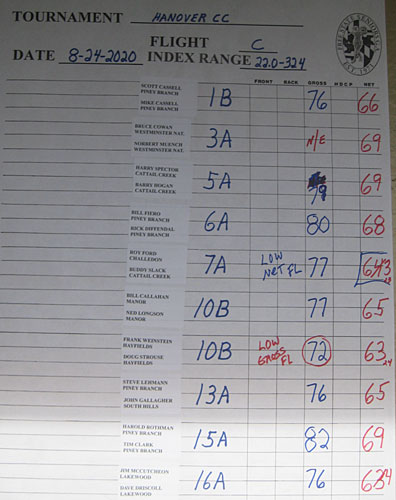 TOURNAMENT HANOVER CC
FLIGHT C
DATE 8-24-2020 INDEX RANGE 22.0-32.4
FRONT BACK GROSS HDCP NET
SCOTT CASSELL
PINEY BRANCH
MIKE CASSELL
PINEY BRANCH
1B 76 66
BRUCE COWAN
WESTMINSTER NAT.
NORBERT MUENCH
WESTMINSTER NAT.
3A N/E 69
HARRY SPECTOR
CATTAIL CREEK
BARRY HOGAN
CATTAIL CREEK
5A 79 69
BILL FIERO
PINEY BRANCH
RICK DIFFENDAL
PINEY BRANCH
6A 80 68
ROY FORD
CHALLEDON
BUDDY SLACK
CATTAIL CREEK
7A LOW NET FL 77
BILL CALLAHAN
MANOR
NED LONGSON
MANOR
10B 77 65
FRANK WEINSTEIN
HAYFIELDS
DOUG STROUSE
HAYFIELDS
10B LOW GROSS FL 72 63
STEVE LEHMANN
PINEY BRANCH
JOHN GALLAGHER
SOUTH HILLS
13A 76 65
HAROLD ROTHMAN
PINEY BRANCH
TIM CLARK
PINEY BRANCH
15A 82 69
JIM MCCUTCHEON
LAKEWOOD
DAVE DRISCOLL
LAKEWOOD
16A 76